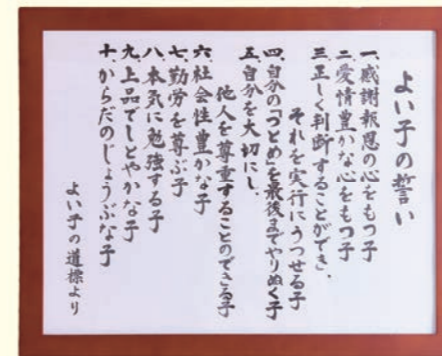 よい子の誓い
一、感謝報恩の心をもつ子
二、愛情豊かな心をもつ子
三、正しく判断することができ、
それを実行にうつせる子
四、自分の「つとめ」を最後までやりぬく子
五、自分を大切にし、
他人を尊重することのできる子
六、社会性豊かな子
七、勤労を尊ぶ子
八、本気に勉強する子
九、上品でしとやかな子
十、からだのじょうぶな子
よい子の道標より